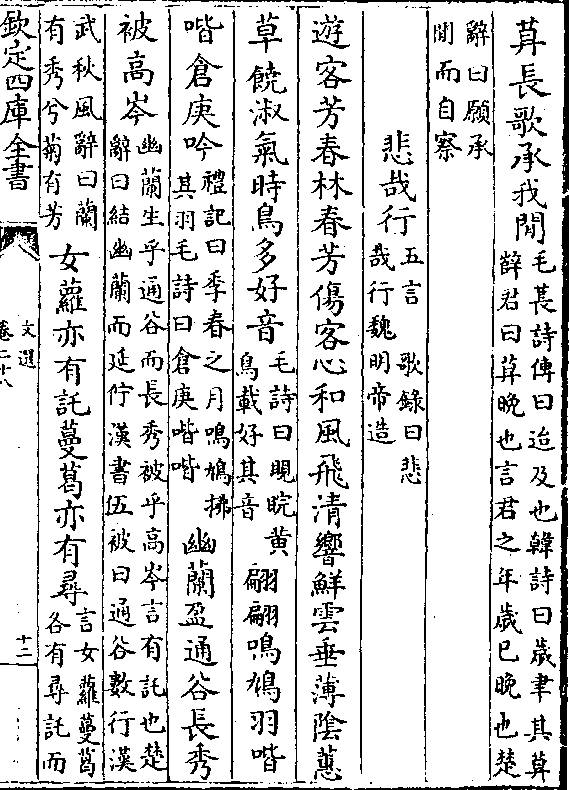 莫長歌承我閒毛萇詩傳曰迨及也韓詩曰歲聿其莫薛君曰莫晚也言君之年歲已晚也楚
辭曰願承閒而自察
悲哉行五言歌錄曰悲哉行魏明帝造
遊客芳春林春芳傷客心和風飛清響鮮雲垂薄陰蕙
草饒淑氣時鳥多好音毛詩曰睍睆黄鳥載好其音翩翩鳴鳩羽喈
喈倉庚吟禮記曰季春之月鳴鳩拂其羽毛詩曰倉庚喈喈幽蘭盈通谷長秀
被高岑幽蘭生乎通谷而長秀被乎高岑言有託也楚辭曰結幽蘭而延佇漢書伍被曰通谷數行漢
武秋風辭曰蘭有秀兮菊有芳女蘿亦有託蔓葛亦有尋言女蘿蔓葛各有尋託而
欽定四庫全書
文選
卷二十八
十二